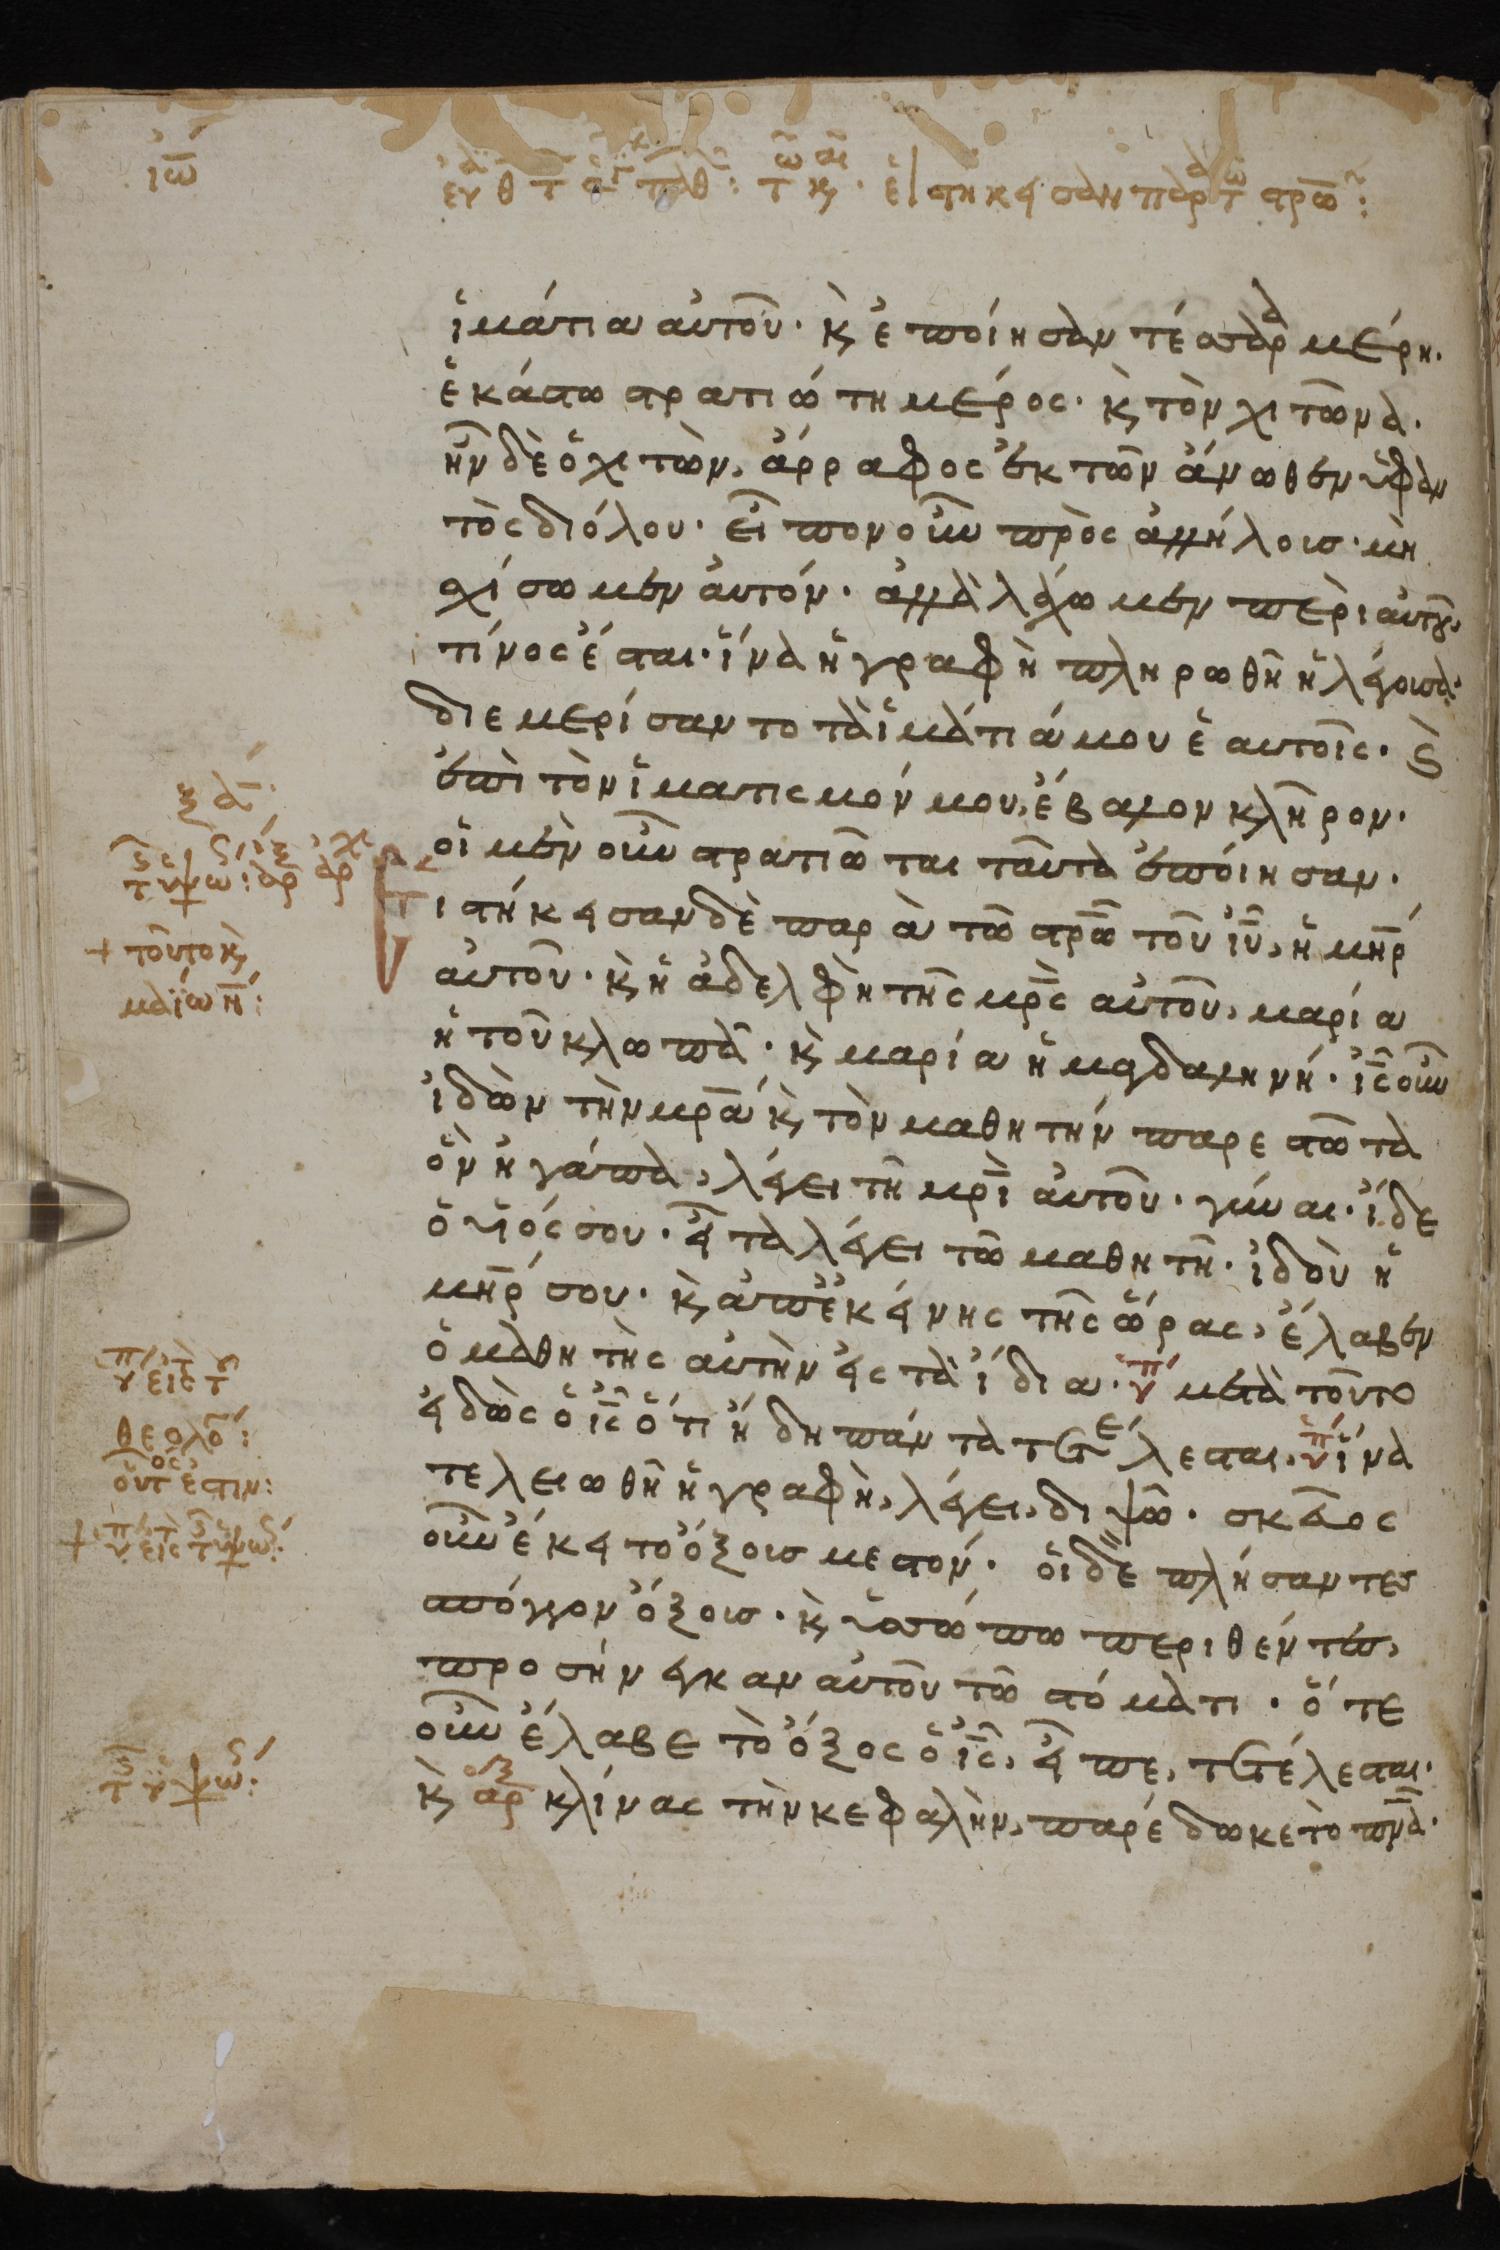 ἰω
ἱμάτια αὐτοῦ· κ̀ ἐποίησαν τέσσαρα μέρη·
ἑκάστω στρατιώτη μέρος· κ̀ τὸν χιτῶνα·
ἦν δὲ ὁ χιτὼν, ἄρραφος ἐκ τῶν ἄνωθεν ὑφαν
τὸς διόλου· εἶπον οὖν πρὸς ἀλλήλους· μὴ
σχίσωμεν αὐτόν· ἀλλὰ λάχωμεν περὶ αὐτοῦ,
τίνος ἔσται· ἵνα ἡ γραφὴ πληρωθῆ ἡ λέγουσα·
διεμερίσαντο τὰ ἱμάτιά μου ἑαυτοῖς· κ̀
ἐπὶ τὸν ἱματισμόν μου, ἔβαλον κλῆρον·
οἱ μὲν οὖν στρατιῶται ταῦτα ἐποίησαν·
ιστήκεισαν δὲ παρὰ τῶ στρῶ τοῦ ἰῦ, ἡ μηρ
αὐτοῦ· κ̀ ἡ ἀδελφὴ τῆς μρς αὐτοῦ, μαρία
ἡ τοῦ κλωπᾶ· κ̀ μαρία ἡ μαγδαληνή· ἰς οὖν
ἰδὼν τὴν μρα κ̀ τὸν μαθητὴν παρεστῶτα
ὃν ἠγάπα, λέγει τῆ μρι αὐτοῦ· γύναι· ἴδε
ὁ υἱός σου· εἶτα λέγει τῶ μαθητῆ· ἰδοὺ ἡ
μηρ σου· κ̀ ἀπ' ἐκείνης τῆς ὥρας, ἔλαβεν
ὁ μαθητὴς αὐτὴν εἰς τὰ ἴδια· ὑπ μετὰ τοῦτο
εἰδὼς ὁ ἰς ὅτι ἤδη πάντα τετέλεσται· ὑπ ἵνα
τελειωθῆ ἡ γραφὴ, λέγει, διψῶ· σκεῦος
οὖν ἔκειτο ὄξους μεστόν· οἱ δὲ πλήσαντες
σπόγγον ὄξους· κ̀ ὑσσώπω περιθέντες,
προσήνεγκαν αὐτοῦ τῶ στόματι· ὅτε
οὖν ἔλαβε τὸ ὄξος ὁ ἰς, εἶπε, τετέλεσται·
κ̀ κλίνας τὴν κεφαλὴν, παρέδωκε τὸ πνα·
ξα
+ τοῦτο κ̀
θεολο: